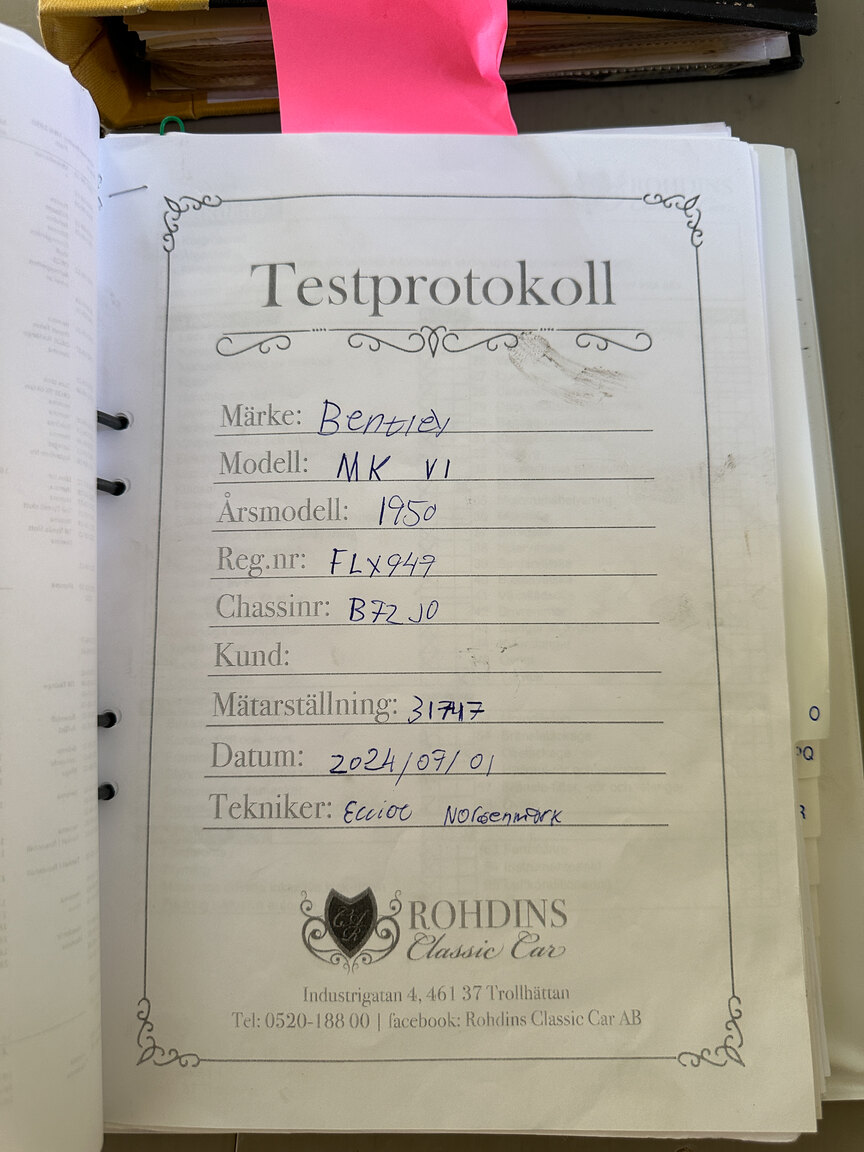 Testprotokoll
Märke: Bentley
Modell: MK VI
Årsmodell: 1950
Reg.nr: FLX949
Chassinr: B72JO
Kund:
Mätarställning: 31747
Datum: 2024/07/01
Tekniker: Elliot
ROHDINS
Classic Car
Industrigatan 4, 461 37 Trollhättan
Tel: 0520-188 00 | facebook: Rohdins Classic Car AB
O